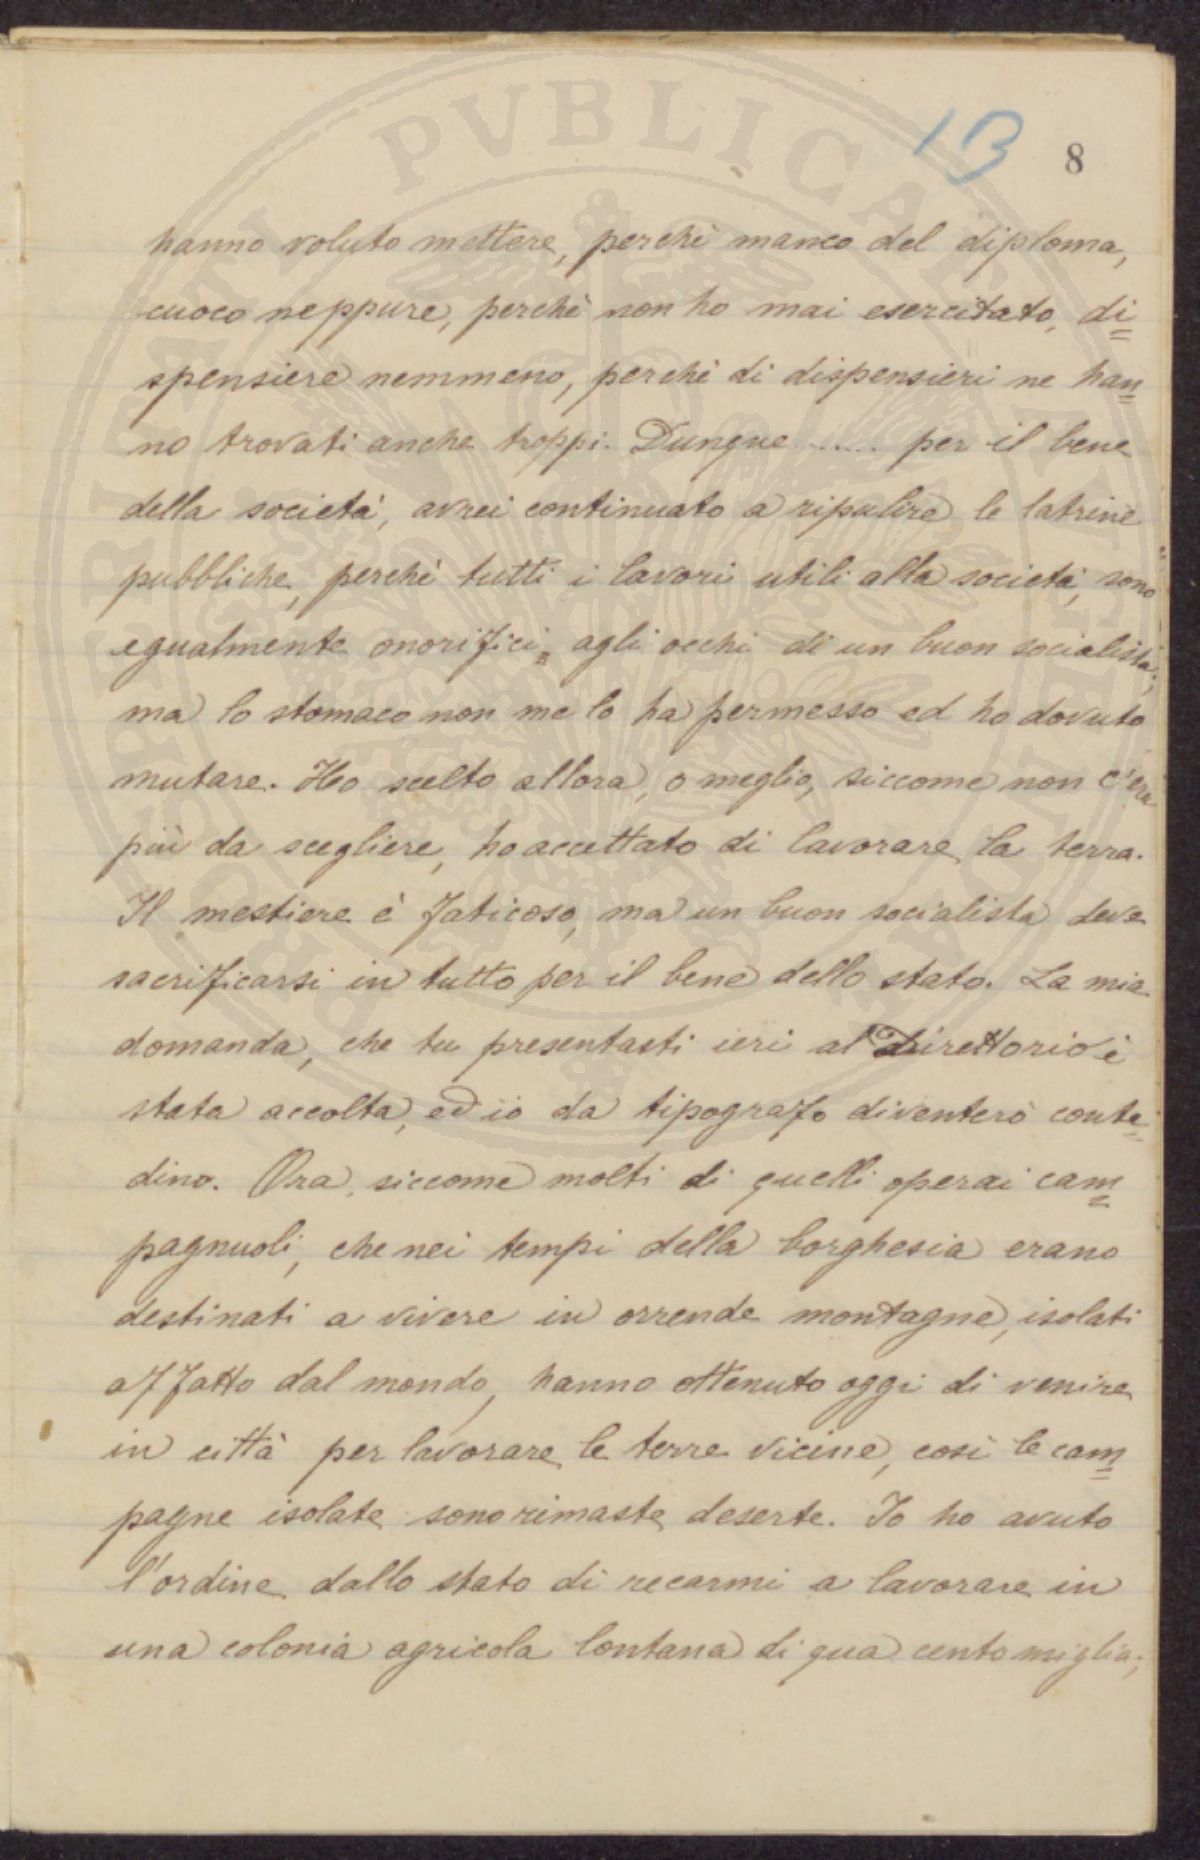 13
8
hanno voluto mettere, perchè manco del diploma,
cuoco neppure, perchè non ho mai esercitato, di=
spensiere nemmeno, perchè di dispensieri ne han=
no trovati anche troppi. Dunque ..... per il bene
della società, avrei continuato a ripulire le latrine
pubbliche, perchè tutti i lavori utili alla società, sono
egualmente onorifici, agli occhi di un buon socialista;
ma lo stomaco non me lo ha permesso ed ho dovuto
mutare. Ho scelto allora, o meglio, siccome non c'era
più da scegliere, ho accettato di lavorare la terra.
Il mestiere è faticoso, ma un buon socialista deve
sacrificarsi in tutto per il bene dello stato. La mia
domanda, che tu presentasti ieri al Direttorio è
stata accolta, ed io da tipografo diventerò conta=
dino. Ora, siccome molti di quelli operai cam=
pagnuoli, che nei tempi della borghesia erano
destinati a vivere in orrende montagne, isolati
affatto dal mondo, hanno ottenuto oggi di venire
in città per lavorare le terre vicine, così le cam=
pagne isolate sono rimaste deserte. Io ho avuto
l'ordine dallo stato di recarmi a lavorare in
una colonia agricola lontana di qua cento miglia;